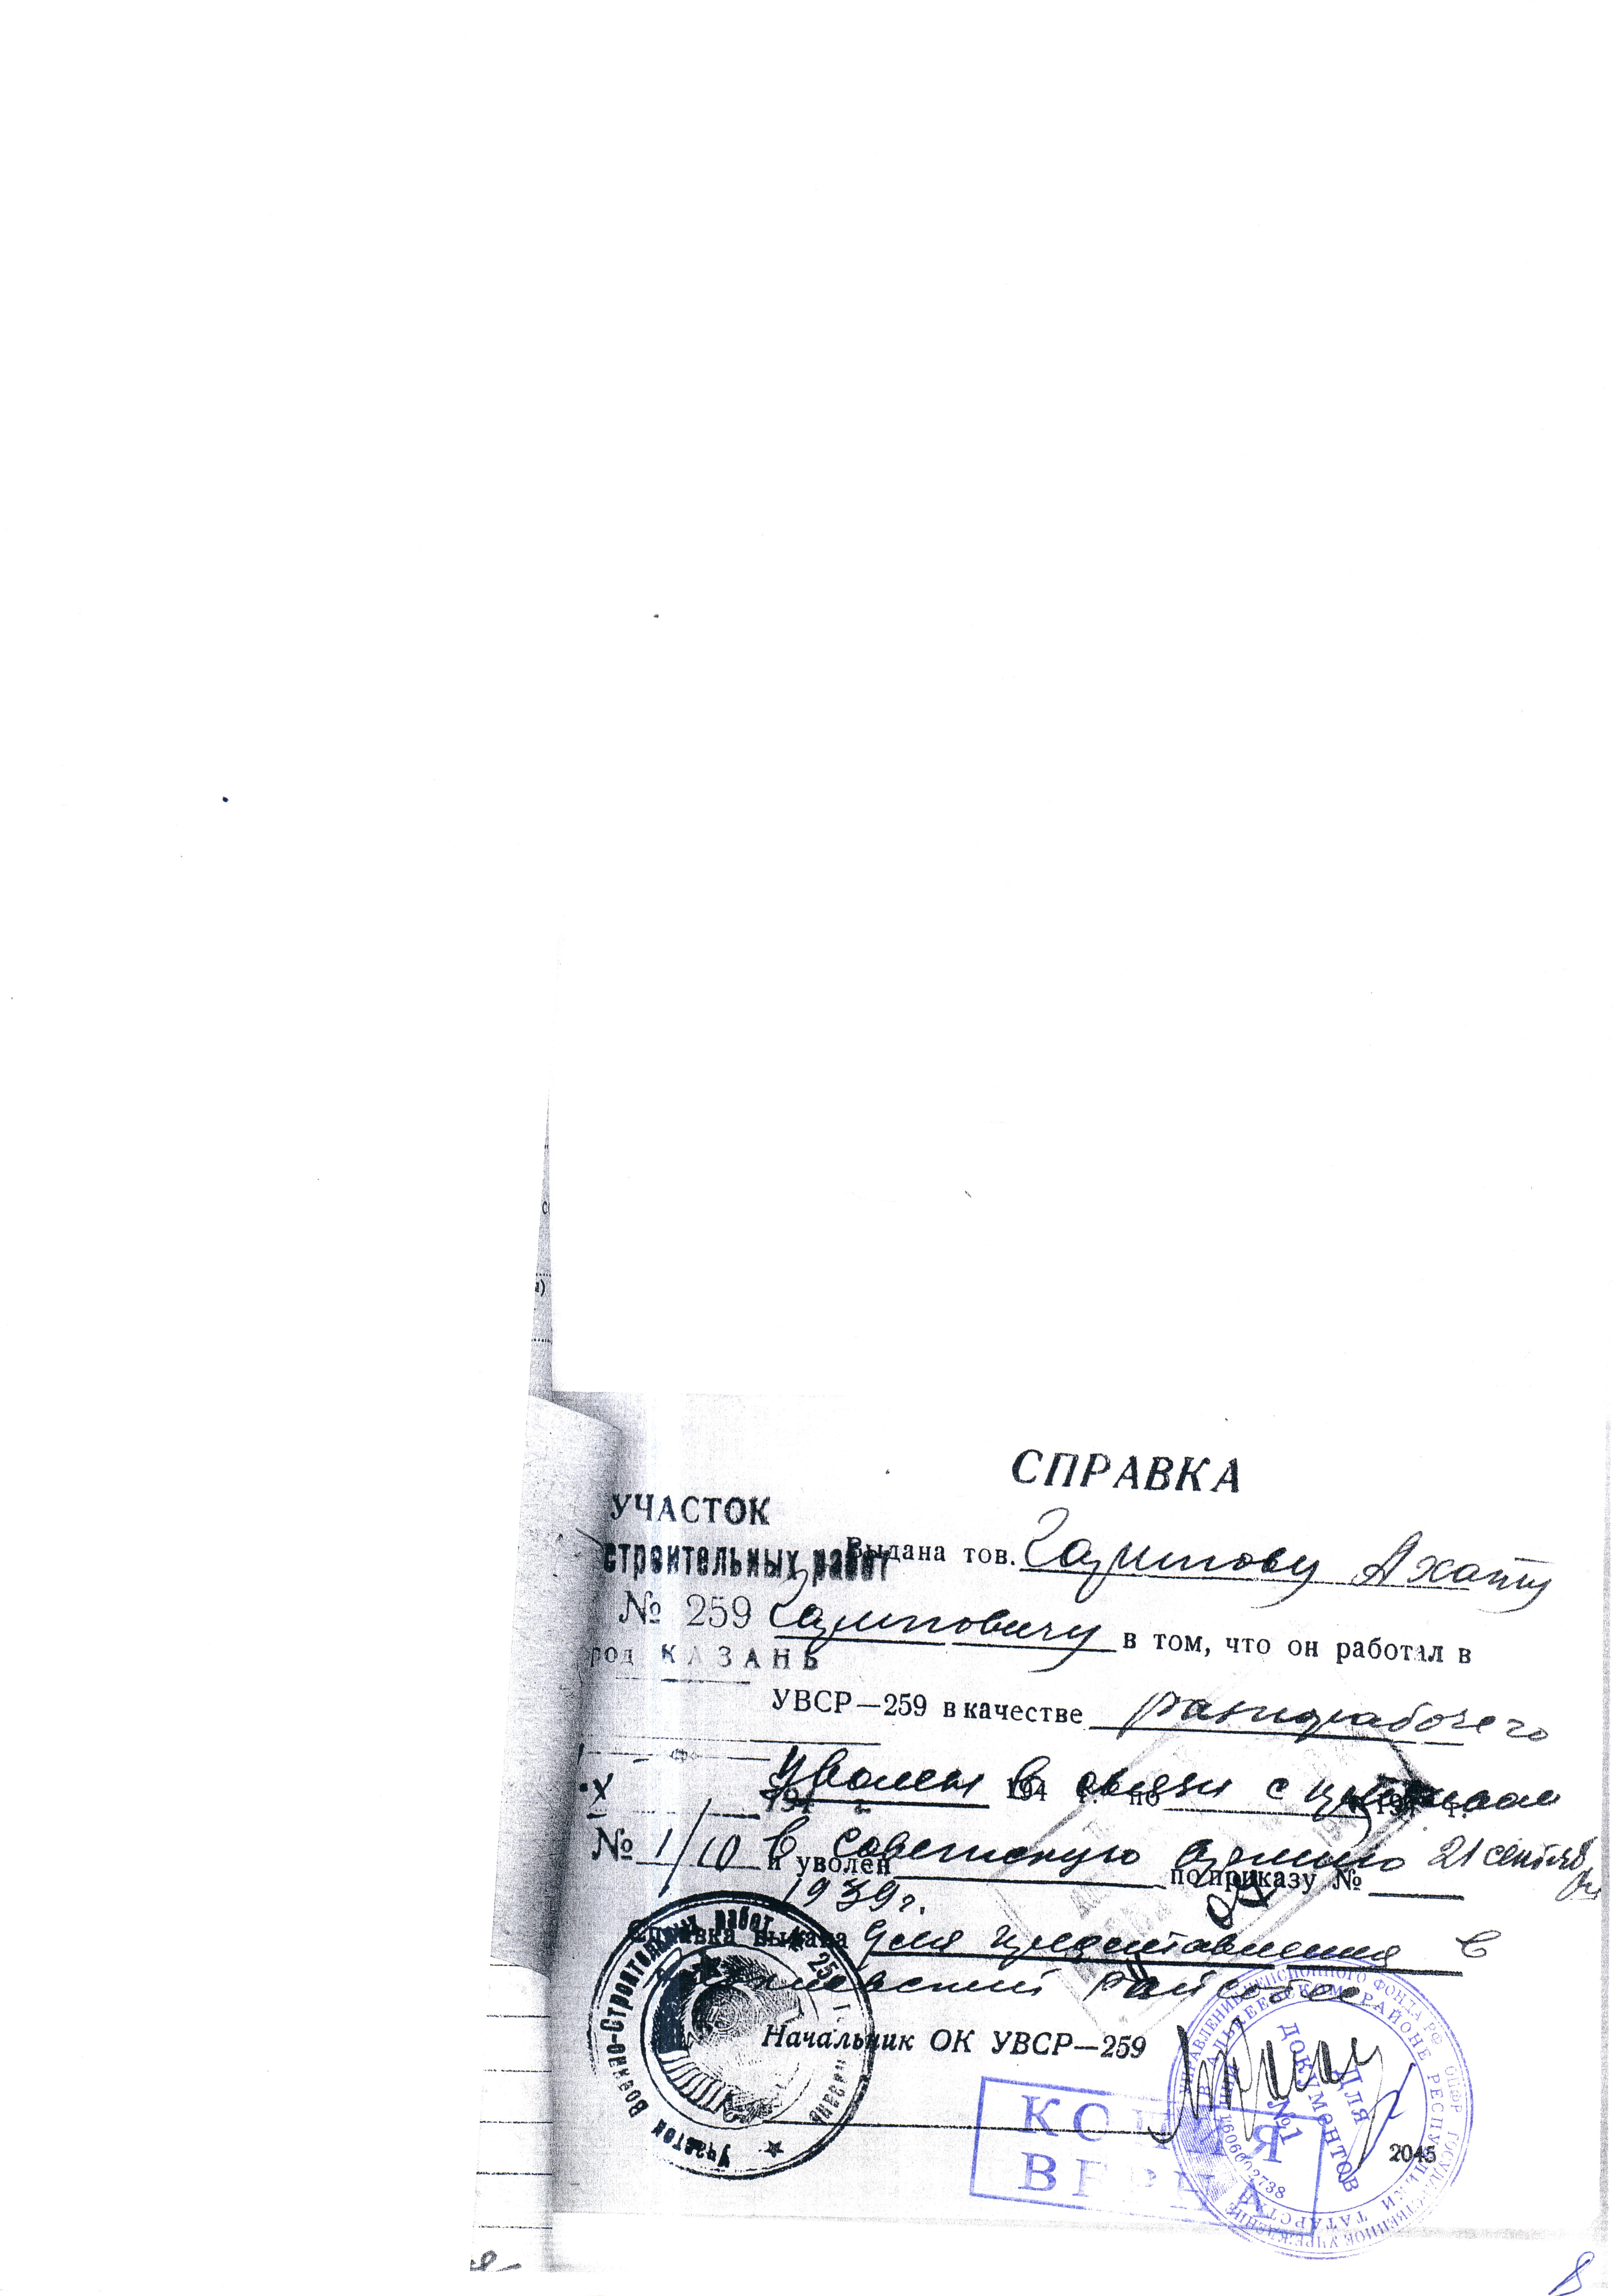 СПРАВКА
УЧАСТОК
строительных работ
№ 259
род КАЗАНЬ
Выдана тов. Гарипову Ахату
Гариповичу в том, что он работал в
УВСР—259 в качестве разнорабочего
уволен в связи с
194 г. по 194 г.
№ 1/10 в советскую армию 21 сентября
и уволен по приказу №
1939 г.
Справка выдана для представления в
райсобес
Начальник ОК УВСР—259
Участок Военно-Строительных работ № 259 г. Казань
КОПИЯ
ВЕРНА
УПРАВЛЕНИЕ ПЕНСИОННОГО ФОНДА РФ
В АЛЬКЕЕВСКОМ РАЙОНЕ РЕСПУБЛИКИ ТАТАРСТАН
ДЛЯ
ДОКУМЕНТОВ
№1
2045